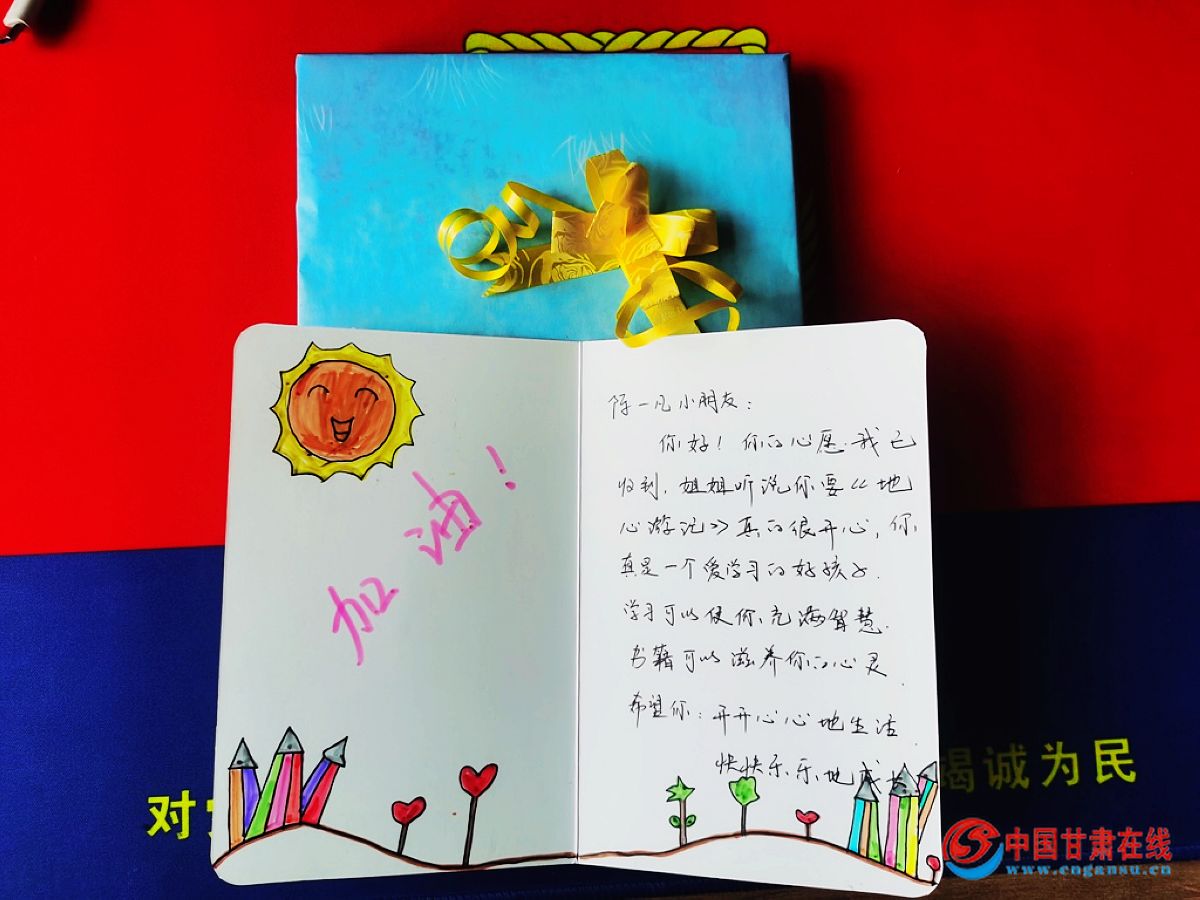 加油！
陈一凡小朋友：
你好！你的心愿.我已
收到，姐姐听说你要《地
心游记》真的很开心，你
真是一个爱学习的好孩子.
学习可以使你充满智慧.
书籍可以滋养你的心灵.
希望你：开开心心地生活.
快快乐乐地成长
对
竭诚为民
中国甘肃在线
www.cngansu.cn